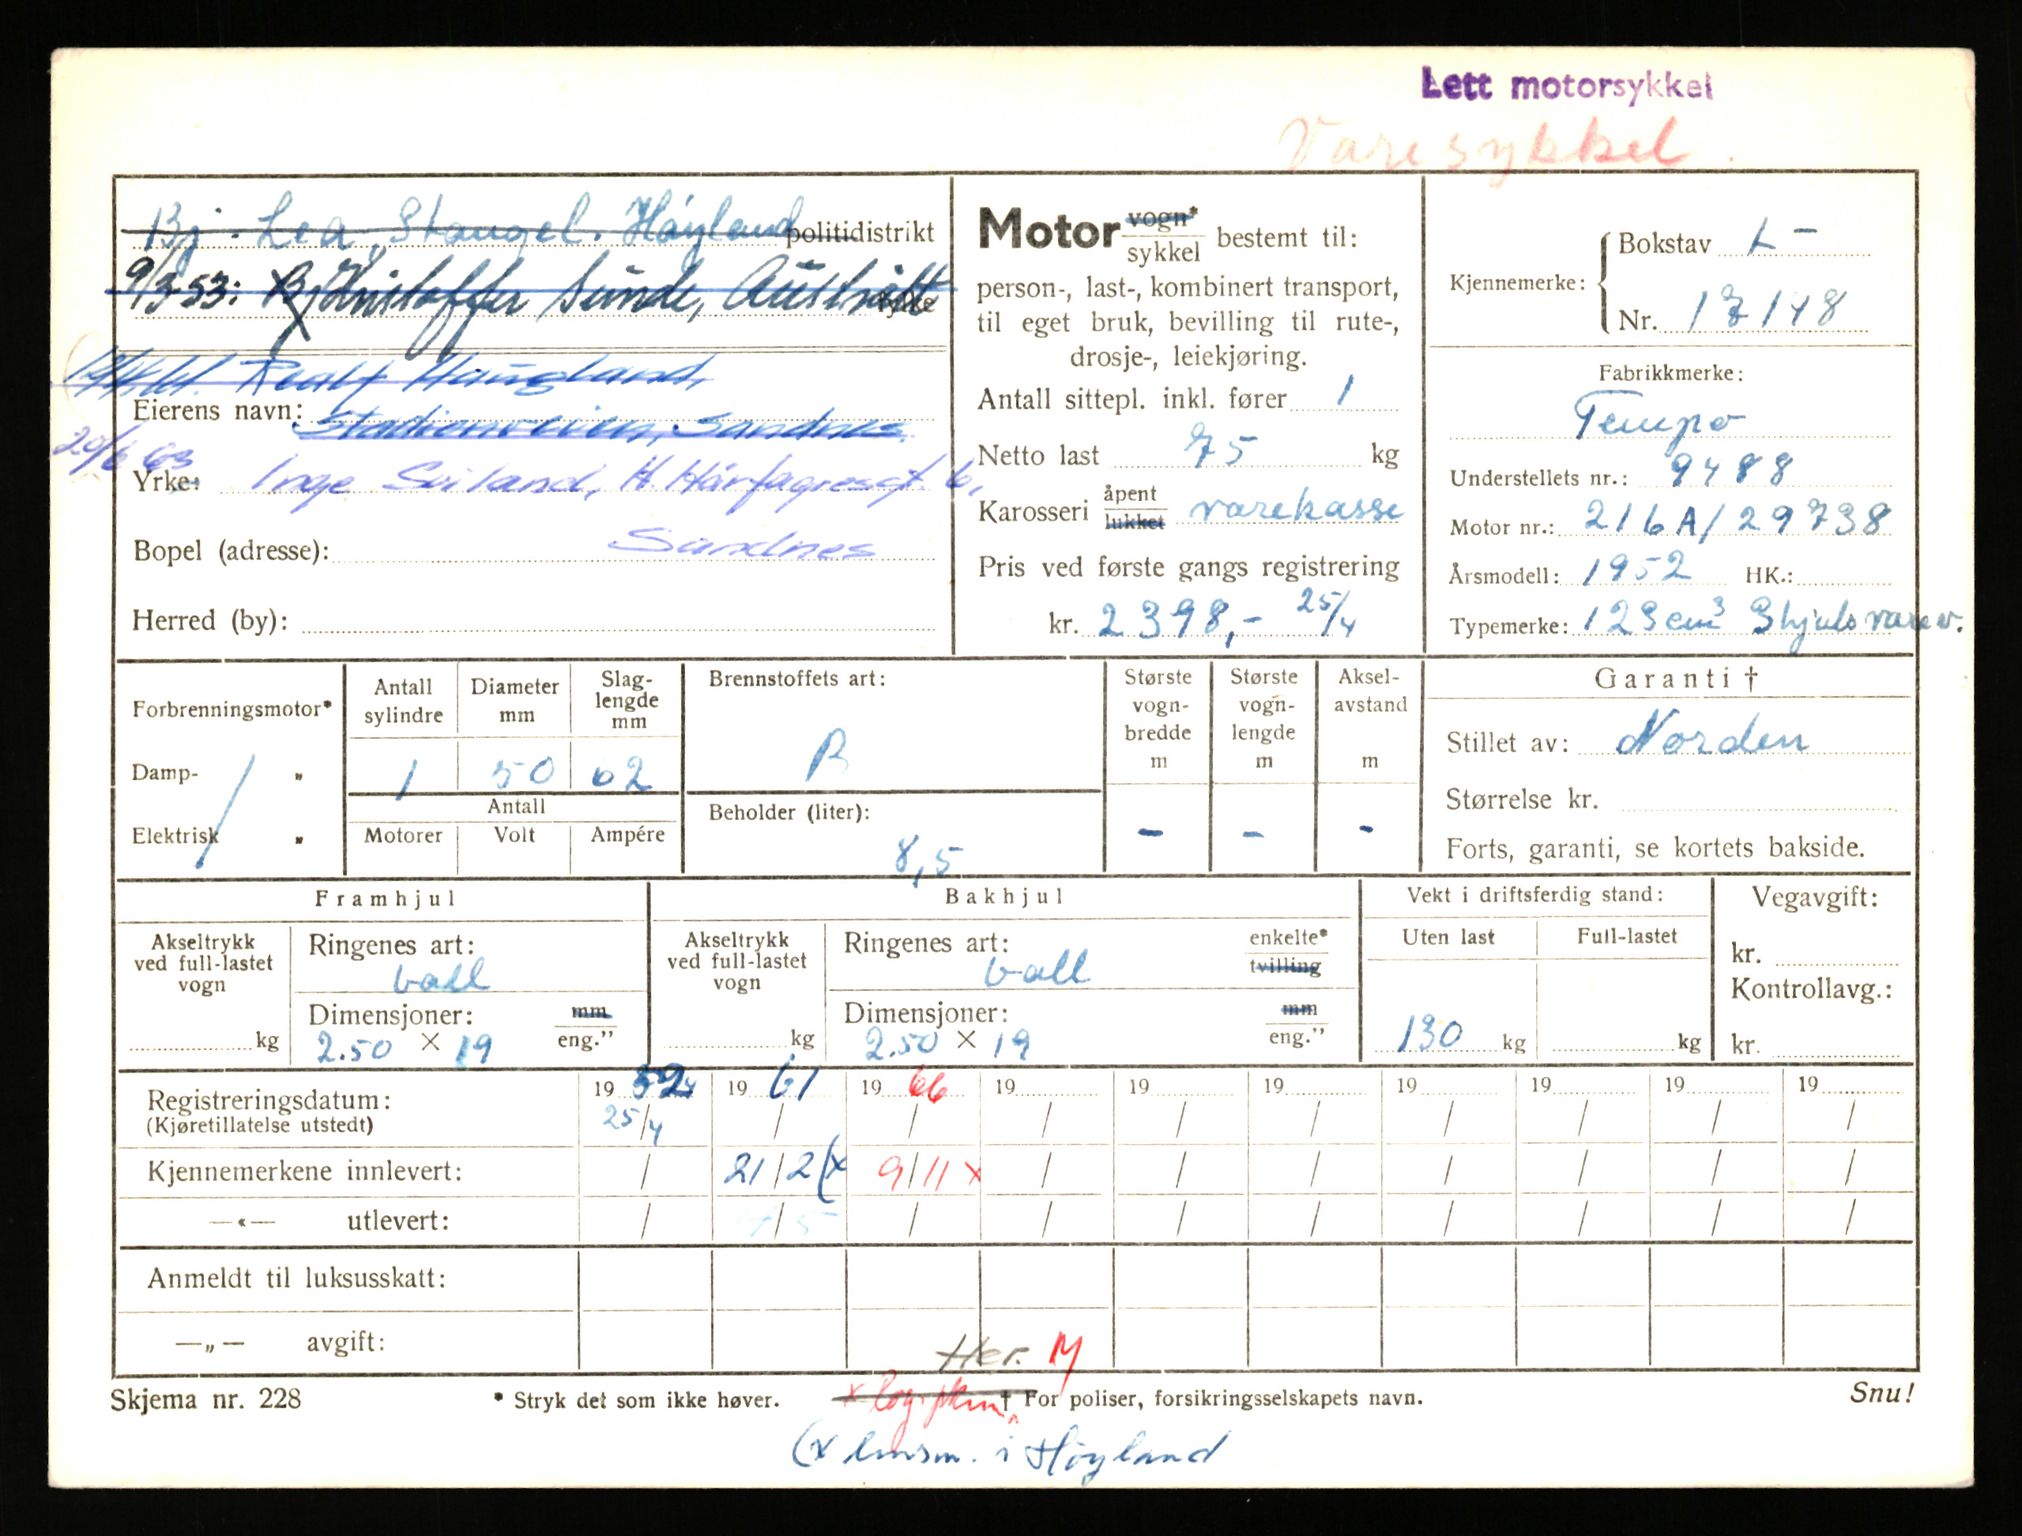 Lett motorsykkel
Varesykkel.
Bj. Lea, Stangel. Høyland politidistrikt
9/3-53: Kristoffer Sunde, Austrått fylke
Realf Haugland,
Eierens navn: Stadionveien, Sandnes
20/6 63
Yrke: Inge Seiland, H. Hårfagresgt. 6,
Bopel (adresse): Sandnes
Herred (by):
Motor vogn* sykkel bestemt til:
person-, last-, kombinert transport,
til eget bruk, bevilling til rute-,
drosje-, leiekjøring.
Antall sittepl. inkl. fører 1
Netto last 75 kg
Karosseri åpent lukket varekasse
Pris ved første gangs registrering
kr. 2398,- 25/4
Kjennemerke: Bokstav L-
Nr. 17148
Fabrikkmerke:
Tempo
Understellets nr.: 9488
Motor nr.: 216A/29738
Årsmodell: 1952 HK.:
Typemerke: 123 cm³ 3hjuls varev.
Forbrenningsmotor*
Damp- "
Elektrisk "
Antall sylindre
Diameter mm
Slaglengde mm
1 50 62
Antall
Motorer Volt Ampére
Brennstoffets art:
B
Beholder (liter):
8,5
Største vognbredde m
Største vognlengde m
Akselavstand m
- - -
Garanti †
Stillet av: Norden
Størrelse kr.
Forts, garanti, se kortets bakside.
Framhjul
Akseltrykk ved full-lastet vogn
kg
Ringenes art:
ball
Dimensjoner: mm eng."
2.50 × 19
Bakhjul
Akseltrykk ved full-lastet vogn
kg
Ringenes art: enkelte* tvilling
ball
Dimensjoner: mm eng."
2.50 × 19
Vekt i driftsferdig stand:
Uten last Full-lastet
130 kg kg
Vegavgift:
kr.
Kontrollavg.:
kr.
Registreringsdatum: 19 52 19 61 19 66 19 19 19 19 19 19 19
(Kjøretillatelse utstedt) 25/4 / / / / / / / / /
Kjennemerkene innlevert: / 21/2 (x 9/11 x / / / / / / /
—«— utlevert: / 4/5 / / / / / / / /
Anmeldt til luksusskatt:
—„— avgift:
Her. M
Skjema nr. 228 * Stryk det som ikke høver. † For poliser, forsikringsselskapets navn. Snu!
(x lensm. i Høyland